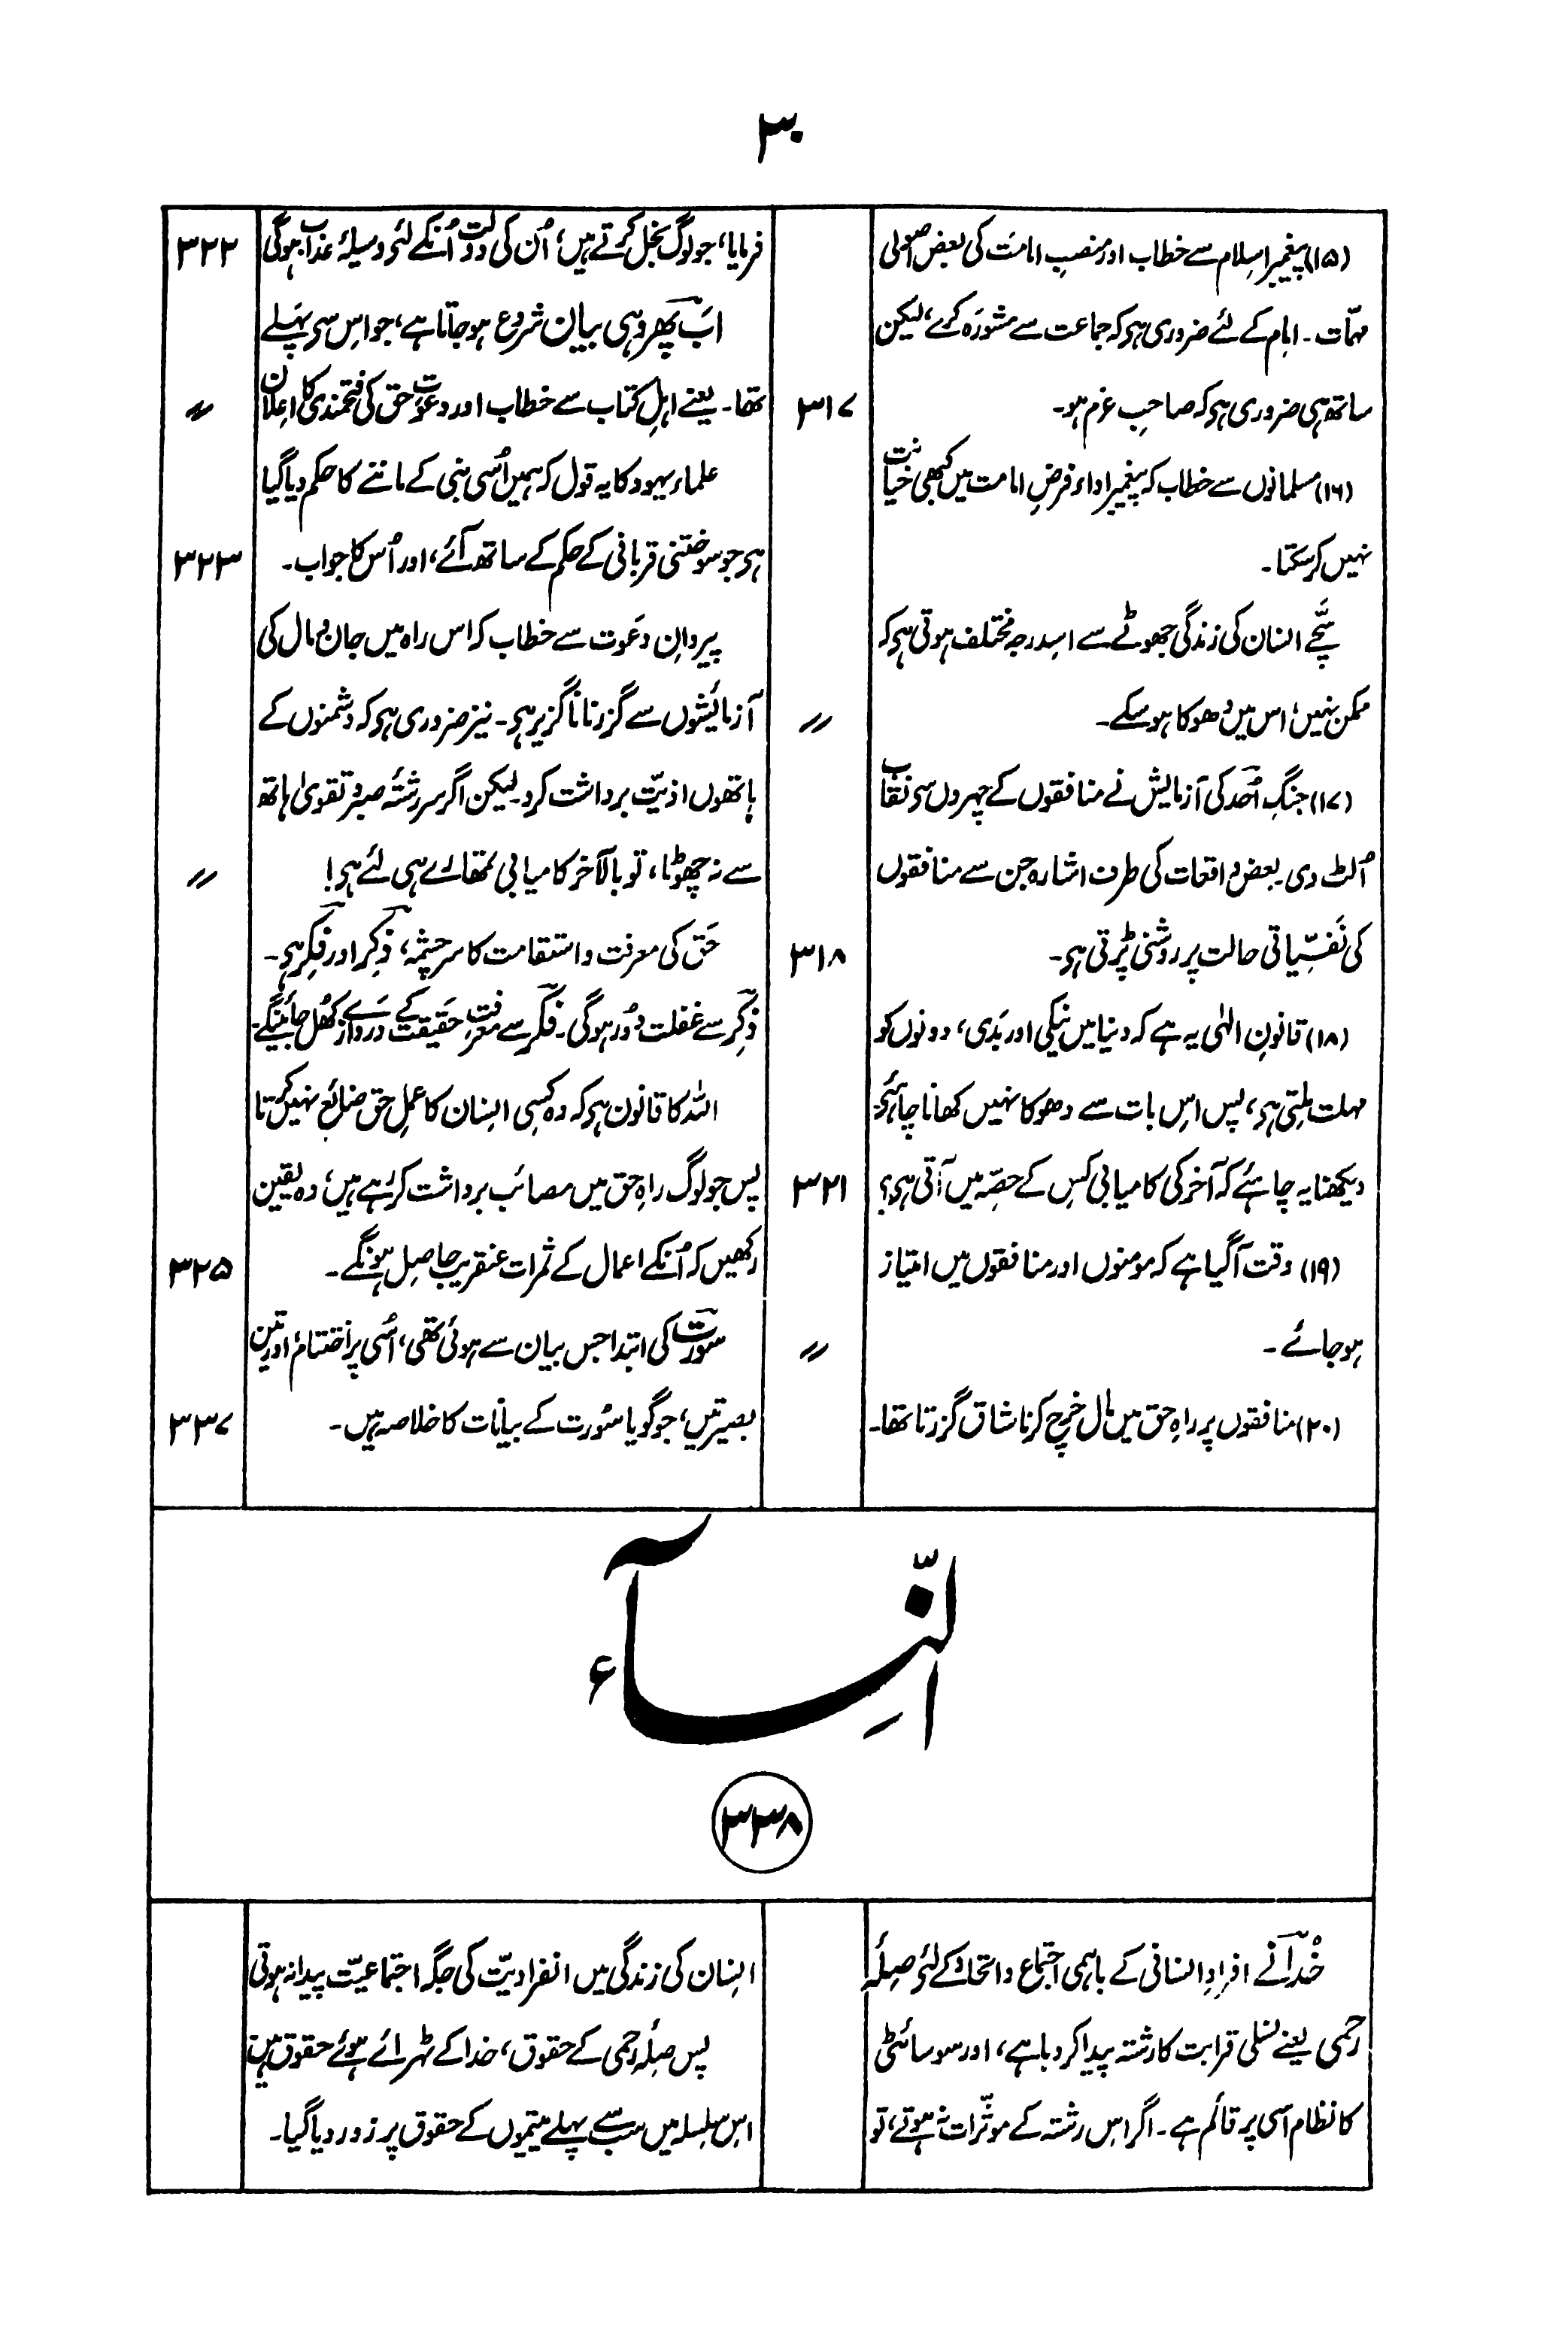 ۳۰
(۱۵) پیغمبر اسلام سے خطاب اور منصبِ امامت کی بعض اصولی
مہمّات۔ امام کے لئے ضروری ہی کہ جماعت سے مشورَہ کرے، لیکن
ساتھ ہی ضروری ہی کہ صاحبِ عزم ہو۔ ۳۱۷
(۱۶) مسلمانوں سے خطاب کہ پیغمبر اداء فرضِ امامت میں کبھی خیانت
نہیں کرسکتا۔
سچّے انسان کی زندگی جھوٹے سے اسدرجہ مختلف ہوتی ہی کہ
ممکن نہیں، اس میں دھوکا ہوسکے۔ 〃
(۱۷) جنگِ اُحد کی آزمایش نے منافقوں کے چہروں سی نقاب
اُلٹ دی۔ بعض واقعات کی طرف اشارہ جن سے منافقوں
کی نَفسِیّاتی حالت پر روشنی پڑتی ہی۔ ۳۱۸
(۱۸) قانونِ الٰہی یہ ہے کہ دنیا میں نیکی اور بَدی، دونوں کو
مہلت ملتی ہی، پس اس بات سے دھوکا نہیں کھانا چاہئی۔
دیکھنا یہ چاہئے کہ آخر کی کامیابی کس کے حصّہ میں آتی ہی؟ ۳۲۱
(۱۹) وقت آگیا ہے کہ مومنوں اور منافقوں میں امتیاز
ہوجائے۔ 〃
(۲۰) منافقوں پر راہِ حق میں مال خرچ کرنا شاق گزرتا تھا۔
فرمایا، جو لوگ بخل کرتے ہیں، اُن کی دولت اُنکے لئی وسیلۂ عذاب ہوگی ۳۲۲
اَب پھر وہی بیان شروع ہوجاتا ہے، جو اس سی پہلے
تھا۔ یعنے اہلِ کتاب سے خطاب اور دعوتِ حق کی فتحمندی کا اعلان 〃
علماء یہود کا یہ قول کہ ہمیں اُسی نبی کے ماننے کا حکم دیا گیا
ہی جو سوختنی قربانی کے حکم کے ساتھ آئے، اور اُس کا جواب۔ ۳۲۳
پیروانِ دعَوت سے خطاب کہ اس راہ میں جان و مال کی
آزمائشوں سے گزرنا ناگزیر ہی۔ نیز ضروری ہی کہ دشمنوں کے
ہاتھوں اذیّت برداشت کرو۔ لیکن اگر سررشتۂ صبر و تقویٰ ہاتھ
سے نہ چھوٹا، تو بالآخر کامیابی تمھارے ہی لئے ہی! 〃
حَق کی معرفت و استقامت کا سرچشمہ، ذِکر اور فِکر ہی۔
ذِکر سے غفلت دُور ہوگی۔ فکر سے معرفتِ حَقیقت کے دروازے کُھل جائینگے۔
اللہ کا قانون ہی کہ وہ کسی انسان کا عملِ حق ضائع نہیں کرتا
پس جو لوگ راہِ حق میں مصائب برداشت کررہے ہیں، وہ یقین
رکھیں کہ اُنکے اعمال کے ثمرات عنقریب حاصل ہونگے۔ ۳۲۵
سورت کی ابتدا جس بیان سے ہوئی تھی، اُسی پر اختتام اور تین
بصیرتیں، جو گویا سُورت کے بیانات کا خلاصہ ہیں۔ ۳۳۷
النِّسآء
۳۳۸
خُدا نے افرادِ انسانی کے باہمی اجتماع و اتحاد کے لئی صِلۂ
رحمی یعنے نسلی قرابت کا رشتہ پیدا کردیا ہے، اور سوسائٹی
کا نظام اسی پر قائم ہے۔ اگر اس رشتہ کے موثّرات نہ ہوتے، تو
انسان کی زندگی میں انفرادیّت کی جگہ اجتماعیّت پیدا نہ ہوتی
پس صِلۂ رحمی کے حقوق، خدا کے ٹہرائے ہوئے حقوق ہیں
اس سلسلہ میں سب سے پہلے یتیموں کے حقوق پر زور دیا گیا۔